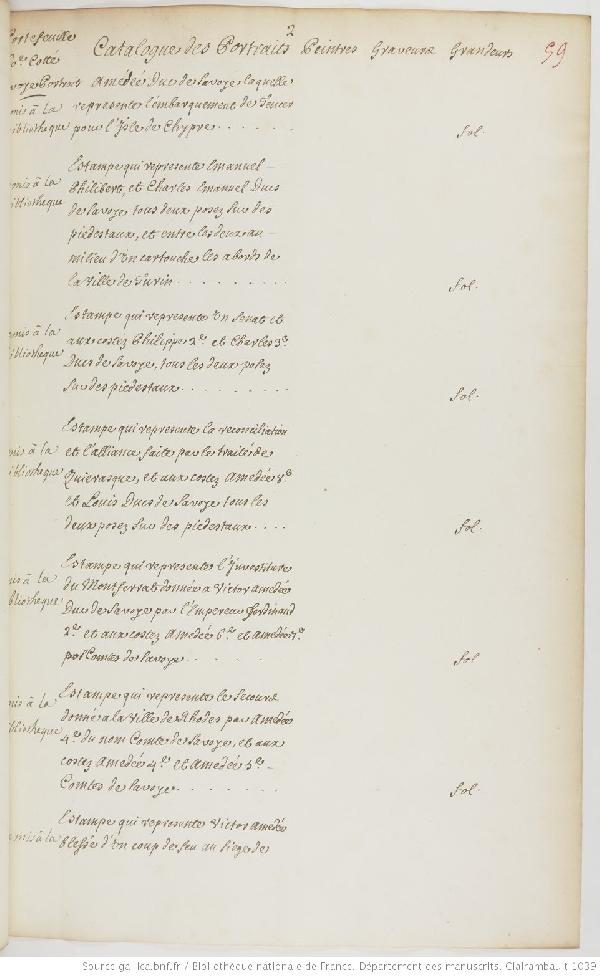 2
Portefeuille
Cotté
Catalogue des Portraits Peintres Graveurs Grandeurs 59
Savoye Portrait Amedée Duc de Savoye laquelle
mis à la represente l'embarquement de
bibliotheque pour l'Isle de Chypre . . . . . . . fol.
Estampe qui represente Emanuel
mis à la Philibert, et Charles Emanuel Ducs
bibliotheque de Savoye tous deux posez sur des
piedestaux, et entre les deux au
milieu d'un cartouche les abords de
la Ville de Turin . . . . . . . . . fol.
Estampe qui represente un Senat et
mis à la aux costez Philippe 2e. et Charles 3e.
bibliotheque Ducs de Savoye, tous les deux posez
sur des piedestaux . . . . . . . . fol.
Estampe qui represente la reconciliation
mis à la et l'alliance faite par le traité de
bibliotheque Quierasque, et aux costez Amedée 8e
et Louis Ducs de Savoye tous les
deux posez sur des piedestaux . . . . fol.
Estampe qui represente l'Investiture
mis à la du Montferrat donnée a Victor Amedée
bibliotheque Duc de Savoye par l'Empereur Ferdinand
2e. et aux costez Amedée 6e. et Amedée 7e.
Comtes de Savoye . . . . . fol
Estampe qui represente le Secours
mis à la donné a la Ville de Rhodes par Amedée
bibliotheque 4e. du nom Comte de Savoye, et aux
costez Amedée 4e. et Amedée 5e.
Comtes de Savoye . . . . . . . . fol.
Estampe qui represente Victor Amedée
mis à la blessé d'un coup de feu au siege de
Source gallica.bnf.fr / Bibliothèque nationale de France. Département des manuscrits. Clairambault 1039